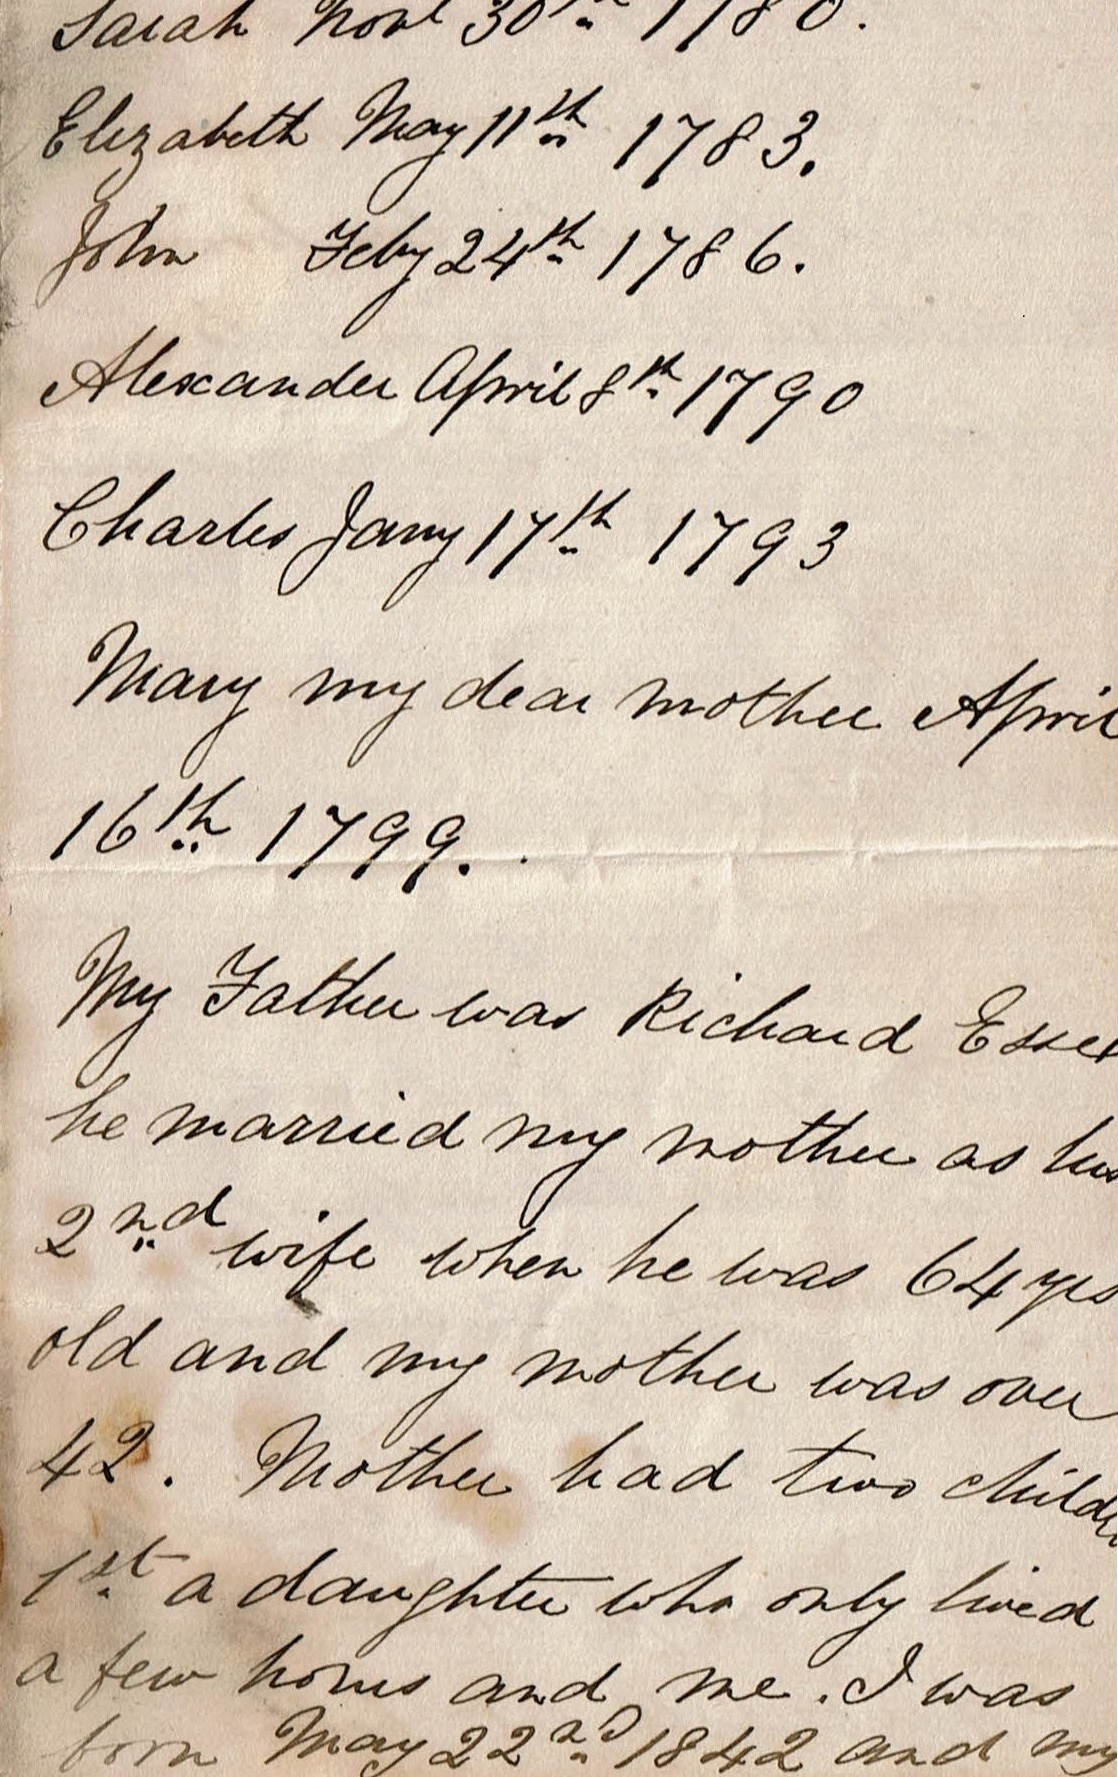 Sarah Novr 30th 1780.
Elizabeth May 11th 1783.
John Feby 24th 1786.
Alexander April 8th 1790
Charles Jany 17th 1793
Mary my dear mother April
16th 1799.
My Father was Richard Esse
he married my mother as his
2nd wife when he was 64 yrs
old and my mother was over
42. Mother had two childr
1st a daughter who only lived
a few hours and me. I was
born May 22nd 1842 and my